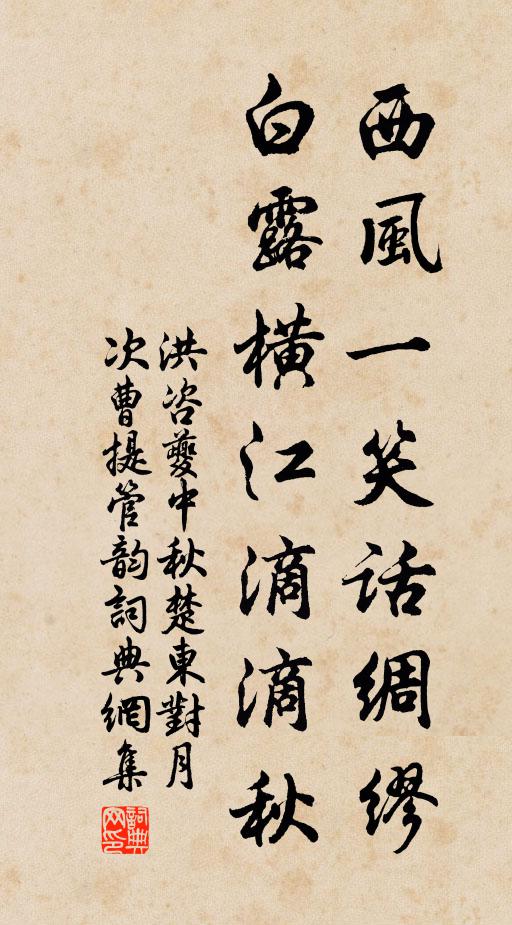 西風一笑話綢繆
白露橫江滴滴秋
洪咨夔中秋楚東對月
次曹提管韵詞典網集
詞典网印